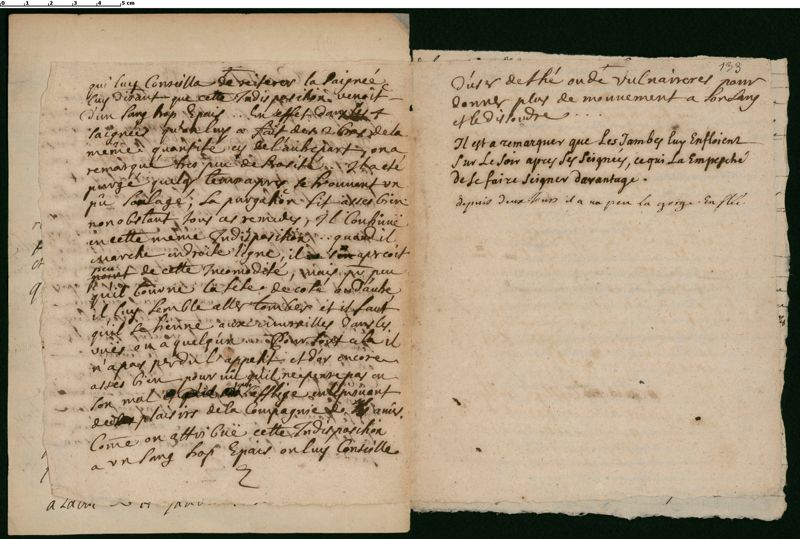 qui luy Conseilla de reiterer la Saignée
luy disant que cette Indisposition venoit
d'un sang trop Epais ... En effet dans
Saignées qu'on luy a fait des 2 bras de la
même quantité on a
remarqué tres peu de serosité. Il a eté
purgé quelq temps apres se trouvant un
peu soulagé; La purgation fit asses bien
nonobstant tous ces remedes, Il Continüe
en cette même Indisposition .. quand il
marche en droite ligne, il s'aperçoit
peu de cette Incomodité, mais pr peu
qu'il tourne la tête de coté ou d'autre
il luy semble aller tomber et il faut
qu'il se tienne aux murailles dans les
rües ou a quelqun. Pour tout cela il
n'a pas perdu l'appetit et dort encore
asses bien pourvû qu'il ne pense pas en
son mal l'afflige en le privant
des plaisirs de la Compagnie de ses amis.
Come on attribüe cette Indisposition
a un sang trop Epais on luy Conseille
133
d'user de thé ou de vulnaireres pour
donner plus de mouvement a son sang
et le dissoudre ....
Il est a remarquer que Les Jambes luy Enfloient
Sur Le Soir apres ses Seignées, ce qui La Empeché
de se faire Seigner davantage.
depuis deux Jours il a un peu la gorge Enflé.